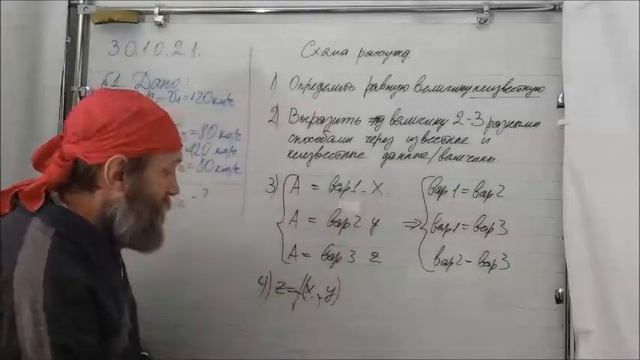 30.10.21.
§1 Дано:
=120 км/ч
= 80 км/ч
120 км/ч
= 80 км/ч
- ?
Схема рассужд.
1) Определить равную величину неизвестную
2) Выразить эту величину 2-3 разными
способами через известные и
неизвестные данные/величины.
3) A = вар1 - x.
A = вар2 y
A = вар3 z
⇒
вар1 = вар2
вар1 = вар3
вар2 - вар3
4) z = f(x, y)